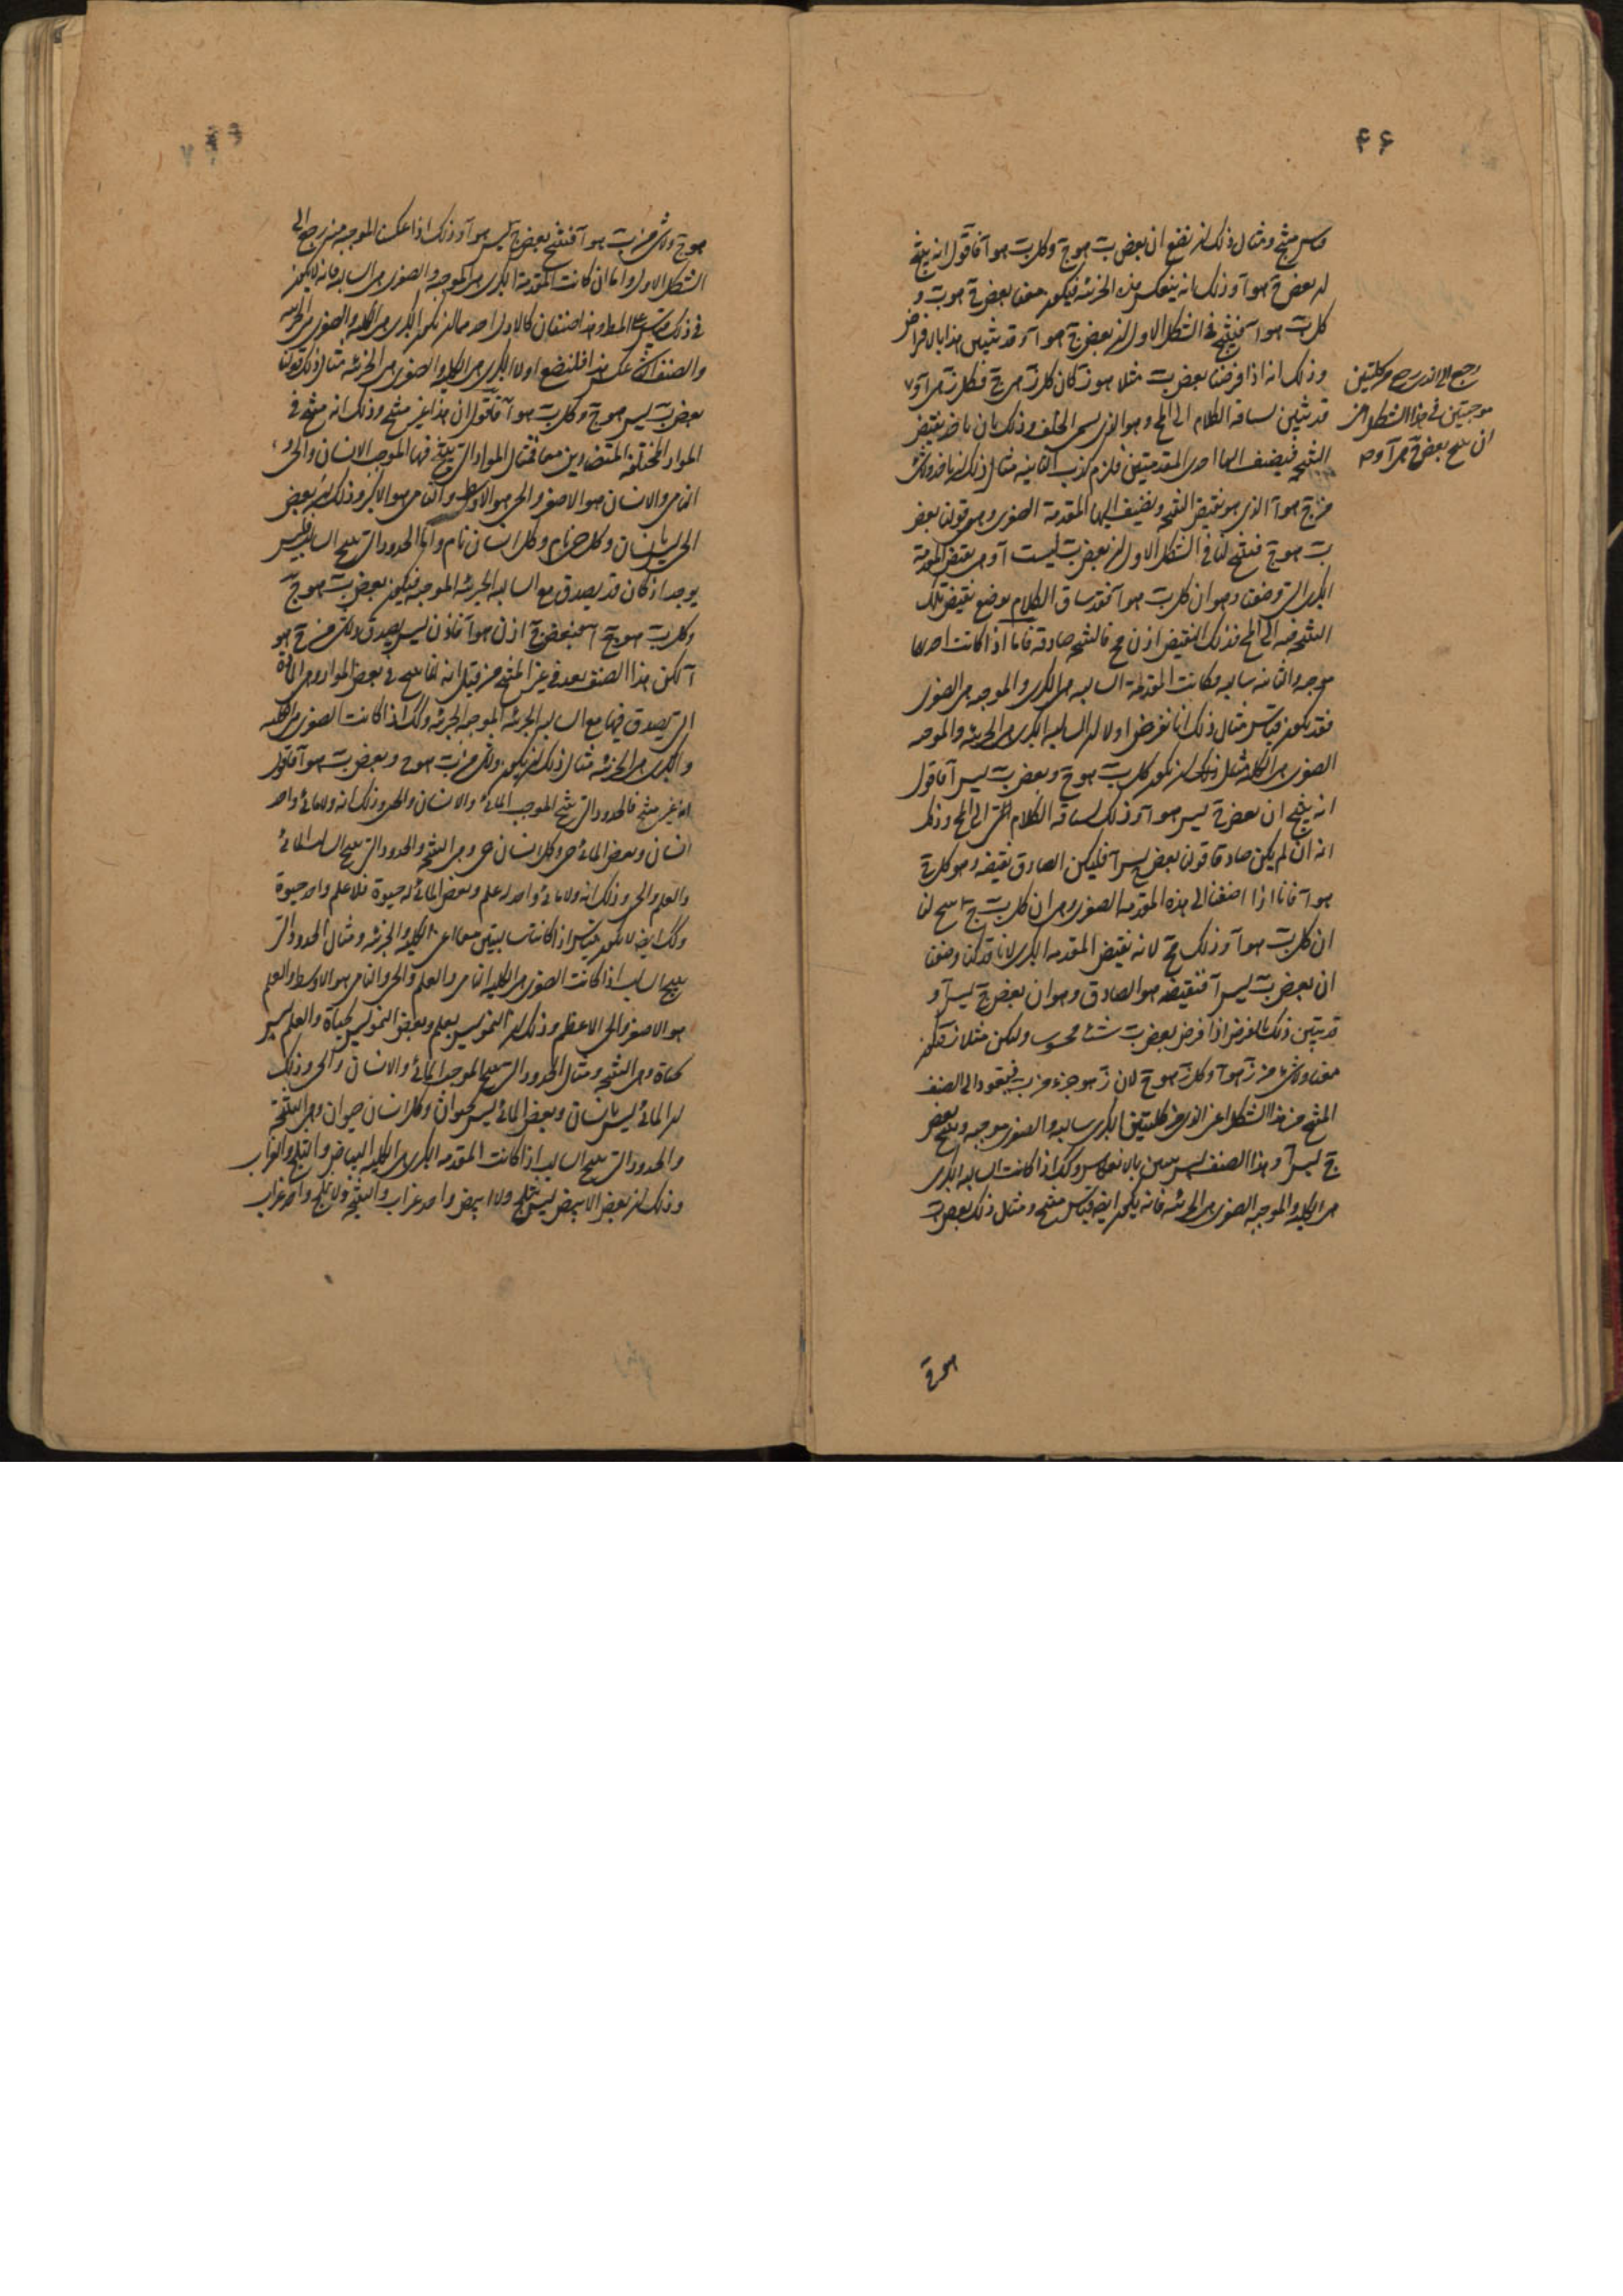 ۴۶
منتج ومثال ذلك ان نضع ان بعض ب هو ج وكل ب هو آ فاقول انه ينتج
ان بعض ج هو آ وذلك انه ينعكس هذه الجزئيه فيكون معنا بعض ج هو ب و
كل ب هو آ فينتج في الشكل الاول ان بعض ج هو آ وقد يتبين هذا بالافتراض
وذلك انه اذا فرضنا بعض ب مثلا هو ز كان كل ز هى ج فكل ز هى آ و
قد يتبين بسياقه الكلام الى المح وهو الذى يسمى الخلف وذلك بان ناخذ نقيض
النتيجه فيضف اليها احدى المقدمتين فلزم كذب الثانيه مثال ذلك ان ناخذ ولا شئ
من ج هو آ الذى هو نقيض النتيجه ونضيف اليها المقدمة الصغرى وهو قولنا بعض
ب هو ج فينتج لنا فى الشكل الاول ان بعض ب ليست آ وهى نقيض المقدمة
الكبرى التى وضعنا وهو ان كل ب هو آ فقد ساق الكلام بوضع نقيض تلك
النتيجه فيه الى المح فذلك النقيض اذن مح فالنتيجه صادقه فاما اذا كانت احدیهما
موجبه والثانيه سالبه وكانت المقدمة السالبه هى الكبرى والموجبه هى الصغرى
فقد يكون قياس مثال ذلك انا نفرض اولا ان السالبه الكبرى هى الجزئيه والموجبه
الصغرى هى الكليه مثل ذلك ان نكون كل ب هو ج وبعض ب ليس آ فاقول
انه ينتج ان بعض ج ليس هو آ وذلك بسياقه الكلام الى المح وذلك
انه ان لم يكن صادقا قولنا بعض ج ليس آ فليكن الصادق نقيضه وهو كل ج
هو آ فانا اذا اضفنا الى هذه المقدمه الصغرى وهى ان كل ب ج انتج لنا
ان كل ب هو آ وذلك مح لانه نقيض المقدمه الكبرى لانا قد كنا وضعنا
ان بعض ب ليس آ فنقيضه هو الصادق وهو ان بعض ج ليس آ و
قد يتبين ذلك بالفرض اذا فرض بعض ب شئ محسوب وليكن مثلا ز فيكون
معنا ولا شئ من ز هو آ وكل ز هو ج لان ز هو جزء من ب فيعود الى الصنف
المنتج من هذا الشكل اعنى الذى من كليتين الكبرى سالبه والصغرى موجبه وينتج بعض
ج ليس آ وهذا الصنف ليس يتبين بالانعكاس وكذلك اذا كانت السالبه الكبرى
هى الكليه والموجبه الصغرى هى الجزئيه فانه يكون ايضا قياس منتج ومثل ذلك بعض ب
رجع الى الذى من كليتين
موجبتين فى هذا الشكل
ان ينتج بعض ج هى آ وهو
هو ج
هو ج ولا شئ من ب هو آ فينتج بعض ج ليس هو آ وذلك اذا عكست الموجبه من رجع الى
الشكل الاول واما ان كانت المقدمة الكبرى هى الموجبه والصغرى هى السالبه فانه لا يكون
فى ذلك قياس على المط وهذا صنفان كالاول احدهما ان نكون الكبرى هى الكليه والصغرى هى الجزئيه
والصنف الثانى عكس هذا فلنضع اولا الكبرى هى الكليه والصغرى هى الجزئيه مثال ذلك قولنا
بعض ب ليس هو ج وكل ب هو آ فاقول ان هذا غير منتج وذلك انه ينتج فى
المواد المختلفه المتضادين معا فمثال المواد التى ينتج فيها الموجب الانسان والحى و
النامى والانسان هو الاصغر والحى هو الاوسط والنامى هو الاكبر وذلك ان بعض
الحى ليس بانسان وكل حى نام وكل انسان نام واما الحدود التى تنتج السالب فليس
يوجد اذ كان قد يصدق مع السالبه الجزئيه الموجبه فيكون بعض ب هو ج
وكل ب هو آ فبعض ج اذن هو آ فاذن ليس يصدق ولا شئ من ج هو
آ لكن هذا الصنف يعد فى غير المنتج من قبل انه انما ينتج فى بعض المواد وهى المادة
التى يصدق فيها مع السالبه الجزئيه الموجبه الجزئيه وكذلك اذا كانت الصغرى هى الكليه
والكبرى هى الجزئيه مثال ذلك ان يكون ولا شئ من ب هو ج وبعض ب هو آ فاقول
انه غير منتج فالحدود التى تنتج الموجب المائى والانسان والحى وذلك انه ولا مائى واحد
انسان وبعض المائى حى وكل انسان حى وهى النتيجه والحدود التى تنتج السالب المائى
والعلم والحى وذلك انه ولا مائى واحد له علم وبعض المائى له حيوة فلا علم واحد حيوة
وكذلك ايضا لا يكون قياس اذا كانتا سالبتين معا اعنى الكليه والجزئيه ومثال الحدود التى
ينتج السالب اذا كانت الصغرى هى الكليه النامى والعلم والحى والنامى هو الاوسط والعلم
هو الاصغر والحى الاعظم وذلك ان النمو ليس بعلم وبعض النمو ليس بحياة والعلم ليس
بحياة وهى النتيجه ومثال الحدود التى تنتج الموجب المائى والانسان والحى وذلك
ان المائى ليس بانسان وبعض المائى ليس بحيوان وكل انسان حيوان وهى النتيجة
والحدود التى تنتج السالب اذا كانت المقدمه الكبرى هى الكليه البياض والثلج والغراب
وذلك ان بعض الابيض ليس بثلج ولا ابيض واحد غراب والنتيجه ولا ثلج واحد غراب